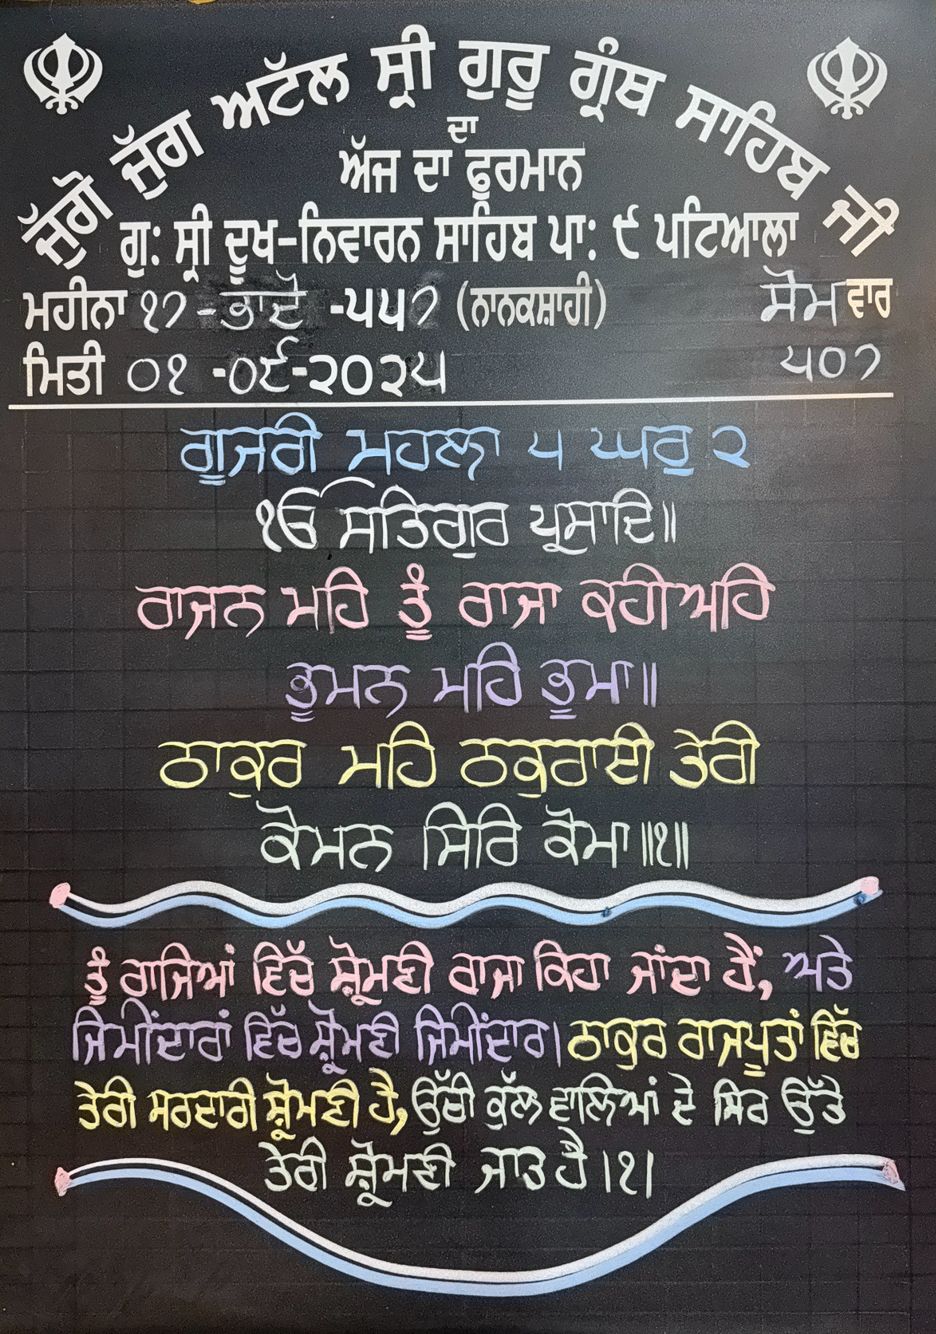 ਜੁੱਗੋ ਜੁੱਗ ਅਟੱਲ ਸ੍ਰੀ ਗੁਰੂ ਗ੍ਰੰਥ ਸਾਹਿਬ ਜੀ
ਦਾ
ਅੱਜ ਦਾ ਫੁਰਮਾਨ
ਗੁ: ਸ੍ਰੀ ਦੂਖ-ਨਿਵਾਰਨ ਸਾਹਿਬ ਪਾ: ੯ ਪਟਿਆਲਾ
ਮਹੀਨਾ ੧੭ -ਭਾਦੋਂ -੫੫੭ (ਨਾਨਕਸ਼ਾਹੀ) ਸੋਮ ਵਾਰ
ਮਿਤੀ ੦੧ -੦੯-੨੦੨੫ ੫੦੭
ਗੂਜਰੀ ਮਹਲਾ ੫ ਘਰੁ ੨
ੴ ਸਤਿਗੁਰ ਪ੍ਰਸਾਦਿ॥
ਰਾਜਨ ਮਹਿ ਤੂੰ ਰਾਜਾ ਕਹੀਅਹਿ
ਭੂਮਨ ਮਹਿ ਭੂਮਾ॥
ਠਾਕੁਰ ਮਹਿ ਠਕੁਰਾਈ ਤੇਰੀ
ਕੋਮਨ ਸਿਰਿ ਕੋਮਾ॥੧॥
ਤੂੰ ਰਾਜਿਆਂ ਵਿੱਚ ਸ਼੍ਰੋਮਣੀ ਰਾਜਾ ਕਿਹਾ ਜਾਂਦਾ ਹੈਂ, ਅਤੇ
ਜਿਮੀਂਦਾਰਾਂ ਵਿੱਚ ਸ਼੍ਰੋਮਣੀ ਜਿਮੀਂਦਾਰ। ਠਾਕੁਰ ਰਾਜਪੂਤਾਂ ਵਿੱਚ
ਤੇਰੀ ਸਰਦਾਰੀ ਸ਼੍ਰੋਮਣੀ ਹੈ, ਉੱਚੀ ਕੁੱਲ ਵਾਲਿਆਂ ਦੇ ਸਿਰ ਉੱਤੇ
ਤੇਰੀ ਸ਼੍ਰੋਮਣੀ ਜਾਤ ਹੈ।੧।